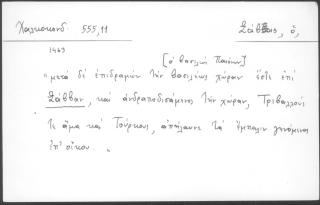 Χαλκοκονδ. 555,11 Σάββας, ὁ,
1463
[ὁ βασιλεὺς Παιόνων]
"μετὰ δὲ ἐπιδραμὼν τὴν βασιλέως χώραν ἔστε ἐπὶ
Σάββαν, καὶ ἀνδραποδισάμενος τὴν χώραν, Τριβαλλούς
τε ἅμα καὶ Τούρκους, ἀπήλαυνε τὰ ἔμπαλιν γενόμενος
ἐπ' οἴκου."